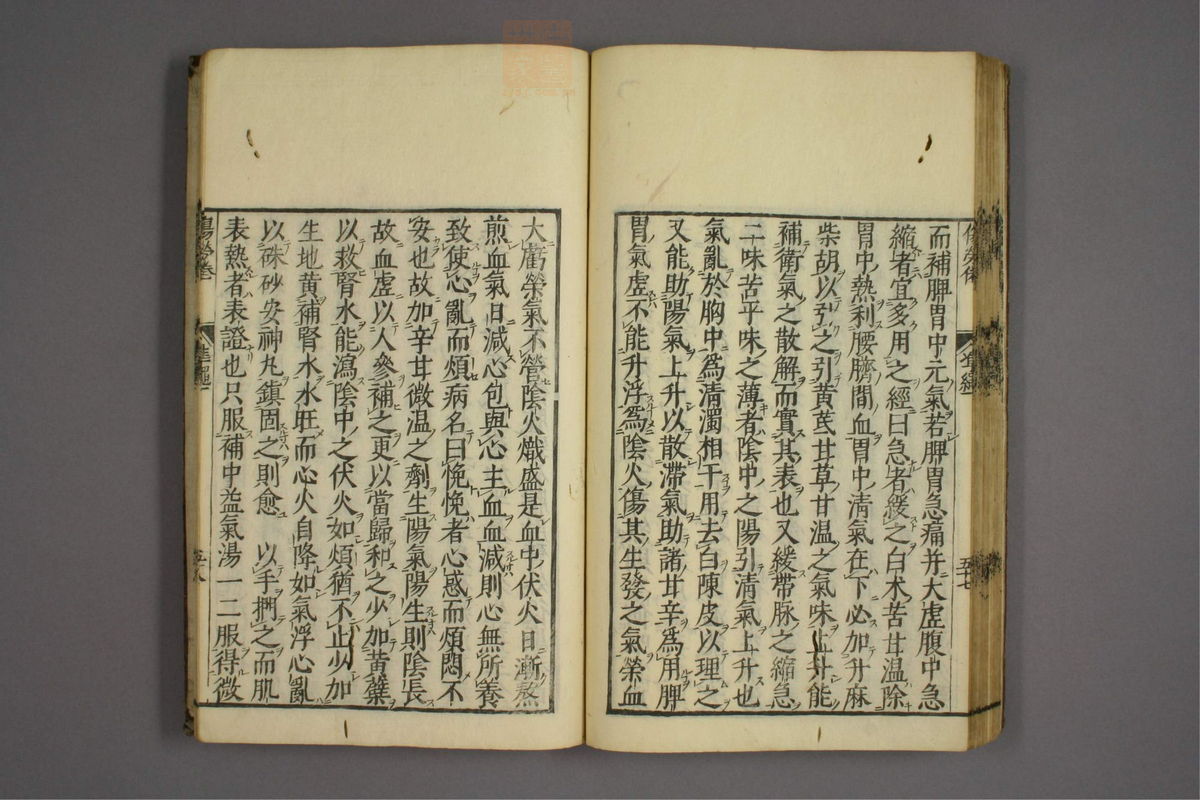 而補脾胃中元氣若脾胃急痛并大虛腹中急
縮者宜多用之經曰急者緩之白术苦甘溫除
胃中熱利腰臍間血胃中清氣在下必加升麻
柴胡以引之引黃芪甘草甘溫之氣味上升能
補衛氣之散解而實其表也又緩帶脉之縮急
二味苦平味之薄者陰中之陽引清氣上升也
氣亂於胸中爲清濁相干用去白陳皮以理之
又能助陽氣上升以散滯氣助諸甘辛爲用脾
胃氣虛不能升浮爲陰火傷其生發之氣榮血
五十七
大虧榮氣不營陰火熾盛是血中伏火日漸熬
煎血氣日減心包與心主血血減則心無所養
致使心亂而煩病名曰悗悗者心惑而煩悶不
安也故加辛甘微温之劑生陽氣陽生則陰長
故血虛以人參補之更以當歸和之少加黃蘗
以救腎水能瀉陰中之伏火如煩猶不止少加
生地黃補腎水水旺而心火自降如氣浮心亂
以硃砂安神丸鎮固之則愈 以手捫之而肌
表熱者表證也只服補中益氣湯一二服得微